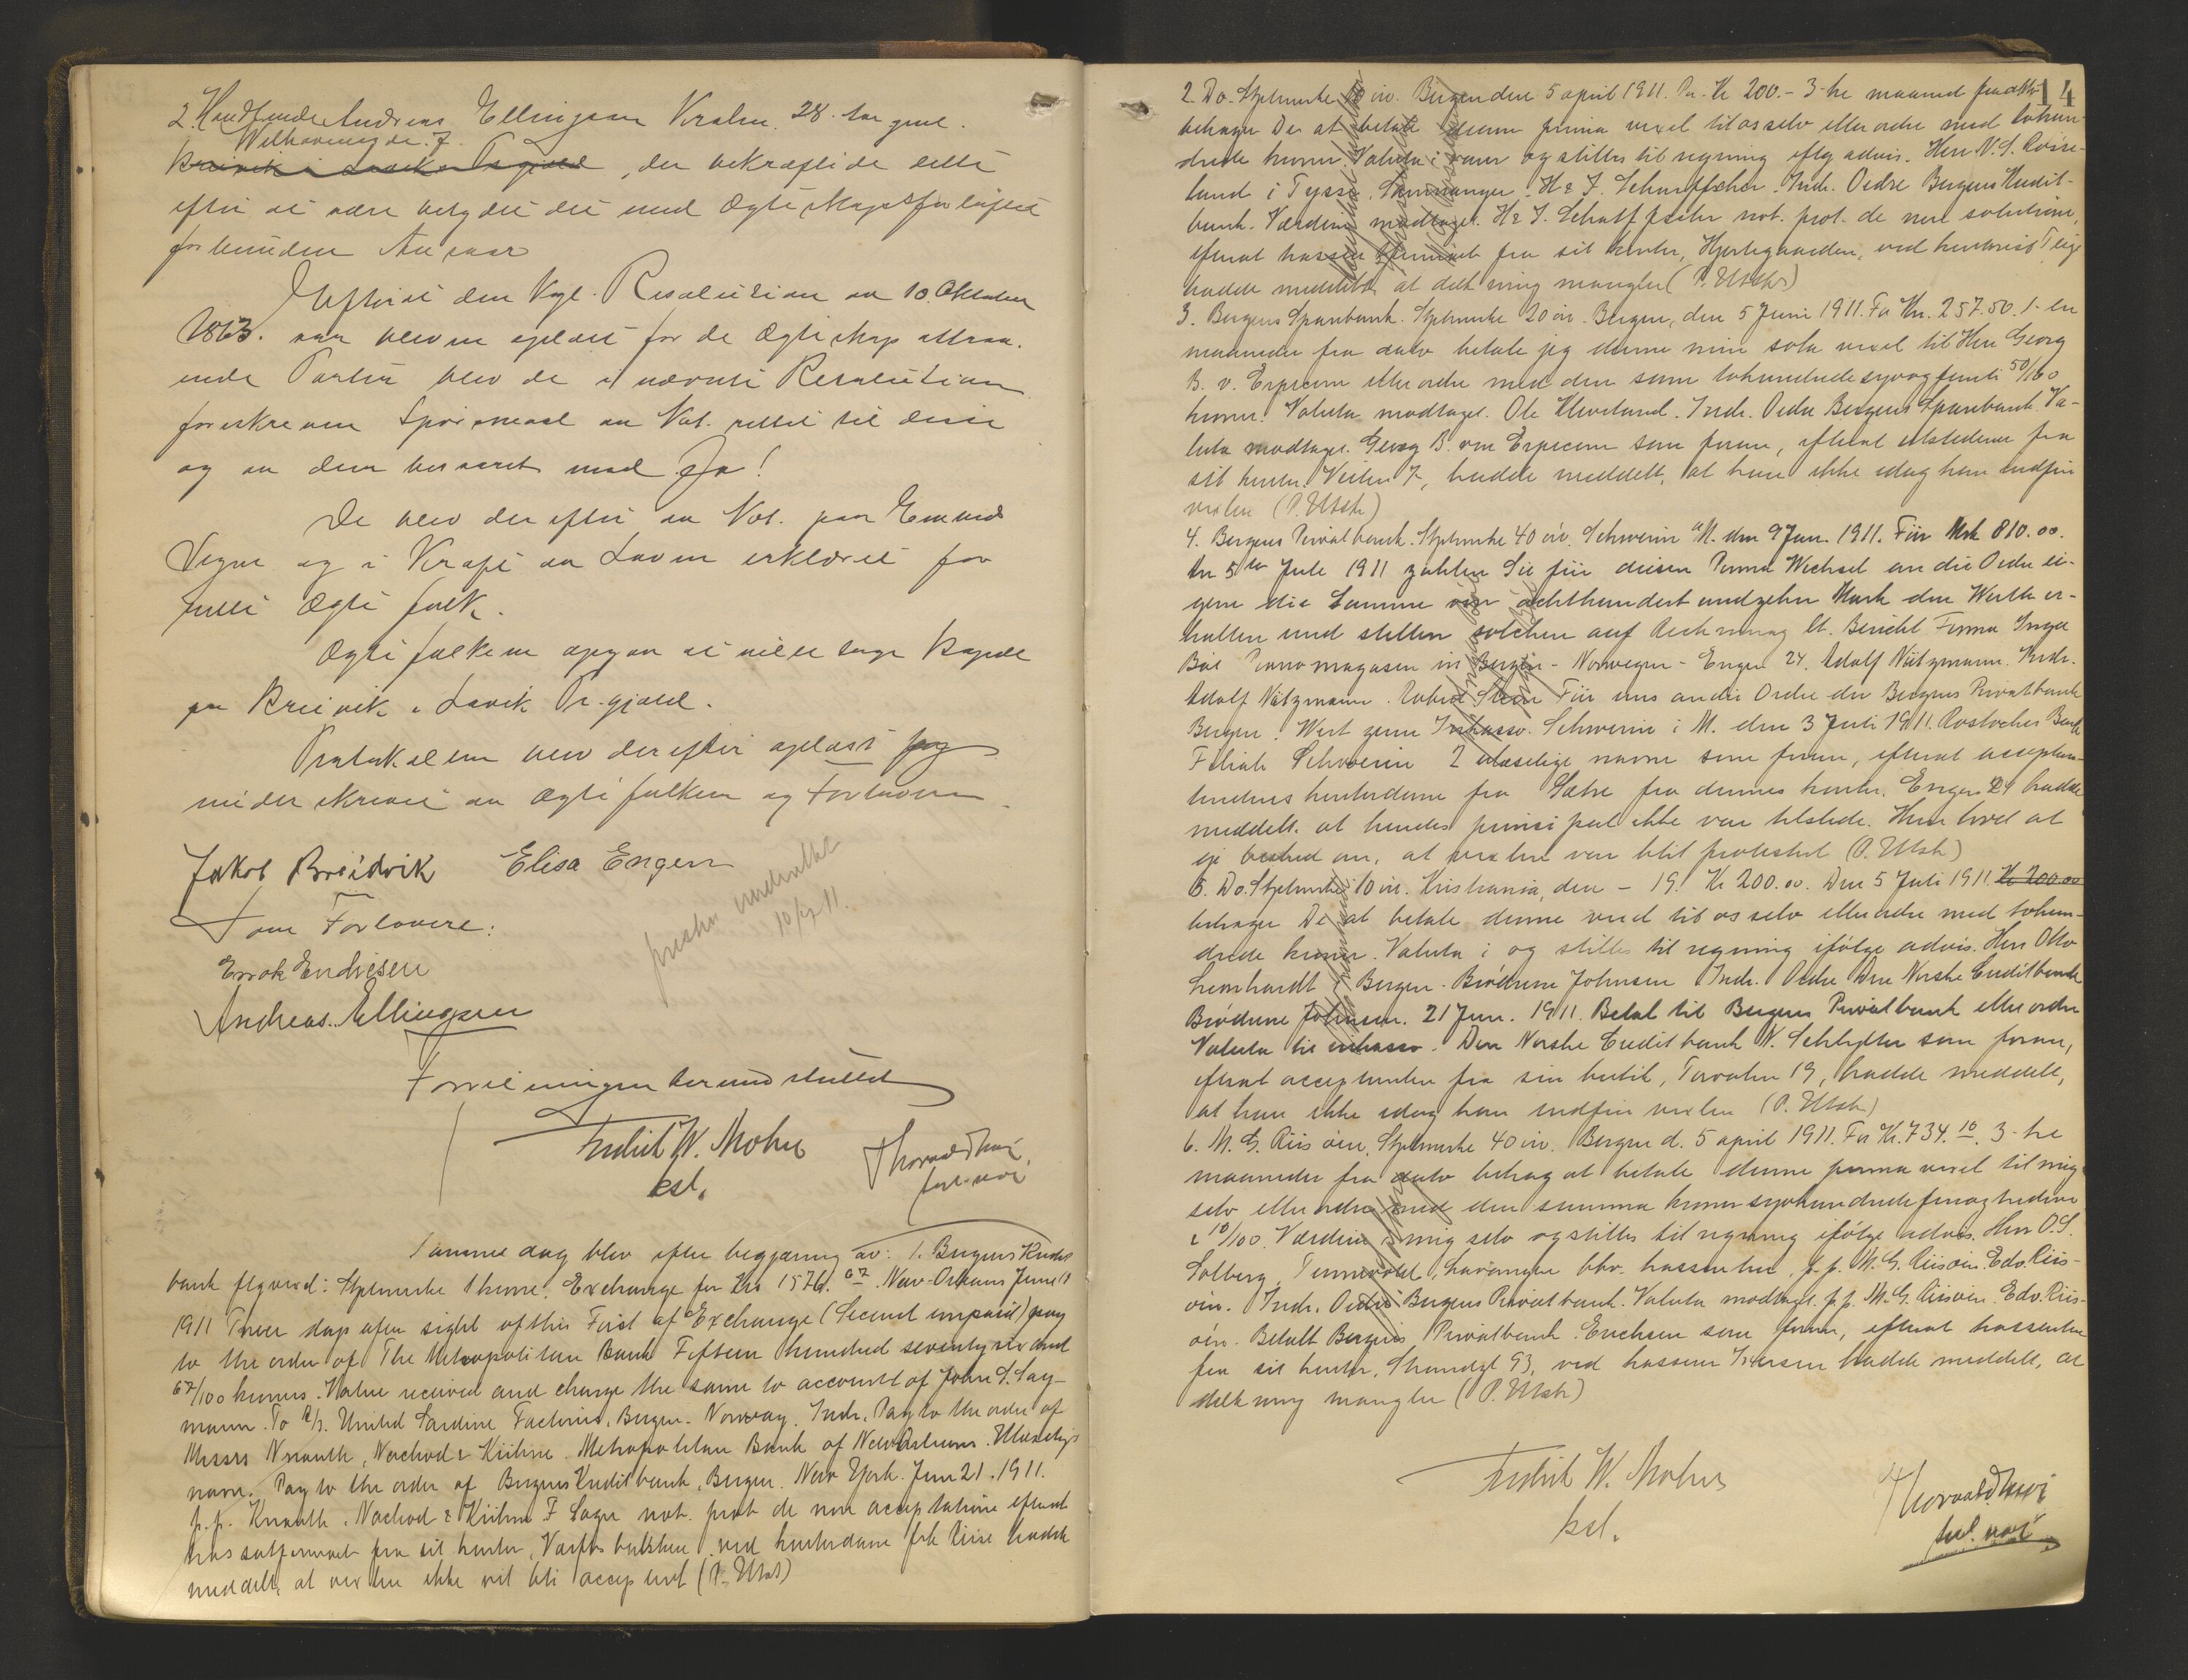 2. Handlende Andreas Ellingsen 28. aar gml.
Welhavensgade. 7.
Breivik i Lavik Prgjæld, der bekræftede dette
efter at være betydet det med Ægteskapsforløftet
forbundne Ansvar
Efterat den Kgl. Resolution av 10. Oktober
1863. var blevne oplæst for de Ægteskap attraa-
ende Parter blev de i nævnte Resolution
foreskrevne Spørsmaal av Not. rettet til disse
og av dem besvaret med Ja!
De blev derefter av Not. paa Embeds
Vegne og i Kraft av Loven erklæret for
rette Ægtefolk.
Ægtefolkene opgav at ville tage Bopæl
paa Breivik i Lavik Pr.gjæld.
Protokollen blev derefter oplæst og
underskrevet av Ægtefolkene og Forloverne.
Jakob Breidvik Elisa Engen
Som Forlovere:
Enok Endresen
Andreas. Ellingsen
presten underrettet
10/7 11.
Forretningen dermed sluttet
Fredrik W. Mohn
kst.
Thorvald
Samme dag blev efter begjæring av: 1. Bergens Kredit
bank flg vexel: Stplmerke 1 krone. Exchange for Krs 1576. 67. New-Orleans June 17
1911 Three days after sight of this First of Exchange (Second unpaid) pay
to the order of The Metropolitan Bank Fifteen hundred seventy six and
67/100 kroners. Value received and charge the same to account of John S. Lay-
mann. To A/S. United Sardine Factories, Bergen. Norway. Indr. Pay to the order of
Messrs Knauth, Nachod & Kühne. Metropolitan Bank of New Orleans. Ulæselig
navn. Pay to the order of Bergens Kreditbank, Bergen. New York. Jun 21. 1911.
p.p. Knauth, Nachod & Kühne F Sager not. prot. de non acceptatione efterat
trassatfirmaet fra sit kontor, ved kontordame frk Riise hadde
meddelt, at vexlen ikke vil bli acceptert (P. Utst)
14
2. Do. Stplmerke 10 øre. Bergen den 5 april 1911. Kr 200.- 3-tre maaned fra dato
behager De at betale denne prima vexel til os selv eller ordre med tohun-
drede kroner. Valuta i varer og stilles til regning eftg advis. Herr N. S. Røise-
land i Tysse, Samnanger. H & J. Scharffscher. Indr. Ordre Bergens Kredit-
bank. Værdien modtaget. H & J. not. prot. de non solutione,
efterat trassentfirmaet fra sit kontor, Hjortegaarden, ved kontorist
hadde meddelt at dækning mangler (P. Utst)
3. Bergens Sparebank. Stplmerke 20 øre. Bergen, den 5 Juni 1911. For Kr. 257.50. 1- en
maaned fra dato betaler jeg denne min sola vexel til Herr Georg
B. v. Erpecom eller ordre med den sum tohundredesyvogfemti 50/100
kroner. Valuta modtaget. Ole Kleveland. Indr. Ordre Bergens Sparebank. Va-
luta modtaget. Georg B. von Erpecom som foran, efterat utstederen fra
sit kontor, Veiten 7, hadde meddelt, at han ikke idag kan indfri
vexlen (P. Utst)
4. Bergens Privatbank. Stplmerke 40 øre. Schwerin i/M. den 9 Jun. 1911. Für Mrk 810.00.
Am 5ten Juli 1911 zahlen Sie für diesen Prima Wechsel an die Ordre ei-
gene die Summe von achthundert und zehn Mark den Werth er-
halten und stellen solchen auf Rechnung lt. Bericht Firma Inga
Bøe Pianomagasin in Bergen - Norwegen - Engen 24. Adolf Nützmann. Indr.
Adolf Nützmann. Für uns an die Ordre der Bergens Privatbank
Bergen. Wert zum Inkasso. Schwerin i M. den 3 Juli 1911. Rostocker Bank
Filiale Schwerin 2 ulæselige navne som foran, efterat acceptan-
tindens kontordame frk Sætre fra dennes kontor. Engen 24 hadde
meddelt, at hendes prinsipal ikke var tilstede. Hun lovet at
gi besked om, at vexlen var blit protestert (P. Utst)
5. Do. Stplmerke 10 øre. Kristiania, den - 19. Kr 200.00. Den 5 Juli 1911. Kr 200.00
behager De at betale denne vexel til os selv eller ordre med tohun-
drede kroner. Valuta i og stilles til regning ifølge advis. Herr Otto
Leonhardt i Bergen. Brødrene Johnsen Indr. Ordre Den Norske Creditbank
Brødrene Johnsen. 21 Jun. 1911. Betal til Bergens Privatbank eller ordre
Valuta til inkasso. Den Norske Creditbank N. Schlytter som foran,
efterat acceptanten fra sin butik, Torvalm 19, hadde meddelt,
at han ikke idag kan indfri vexlen (P. Utst)
6. M. G. Riisøen. Stplmerke 40 øre. Bergen d. 5 april 1911. For Kr. 734.10. 3- tre
maaneder fra dato behag at betale denne prima vexel til mig
selv eller ordre med den summa kroner syvhundredefireogtredive
& 10/100. Værdien i mig selv og stilles til regning ifølge advis. Herr O. S.
Solberg, Tennevold, Lavangen bhv. trassenten. p.p. M. G. Riisøen. Edv. Riis-
øen. Indr. Ordre Bergens Privatbank. Valuta modtaget. p.p. M. G. Riisøen. Edv. Riis-
øen. Betalt Bergens Privatbank. Erichsen som foran, efterat trassenten
fra sit kontor, Strandgt 93, ved kasserer Iversen hadde meddelt, at
dækning mangler (P. Utst)
Fredrik W. Mohn
kst.
Thorvald